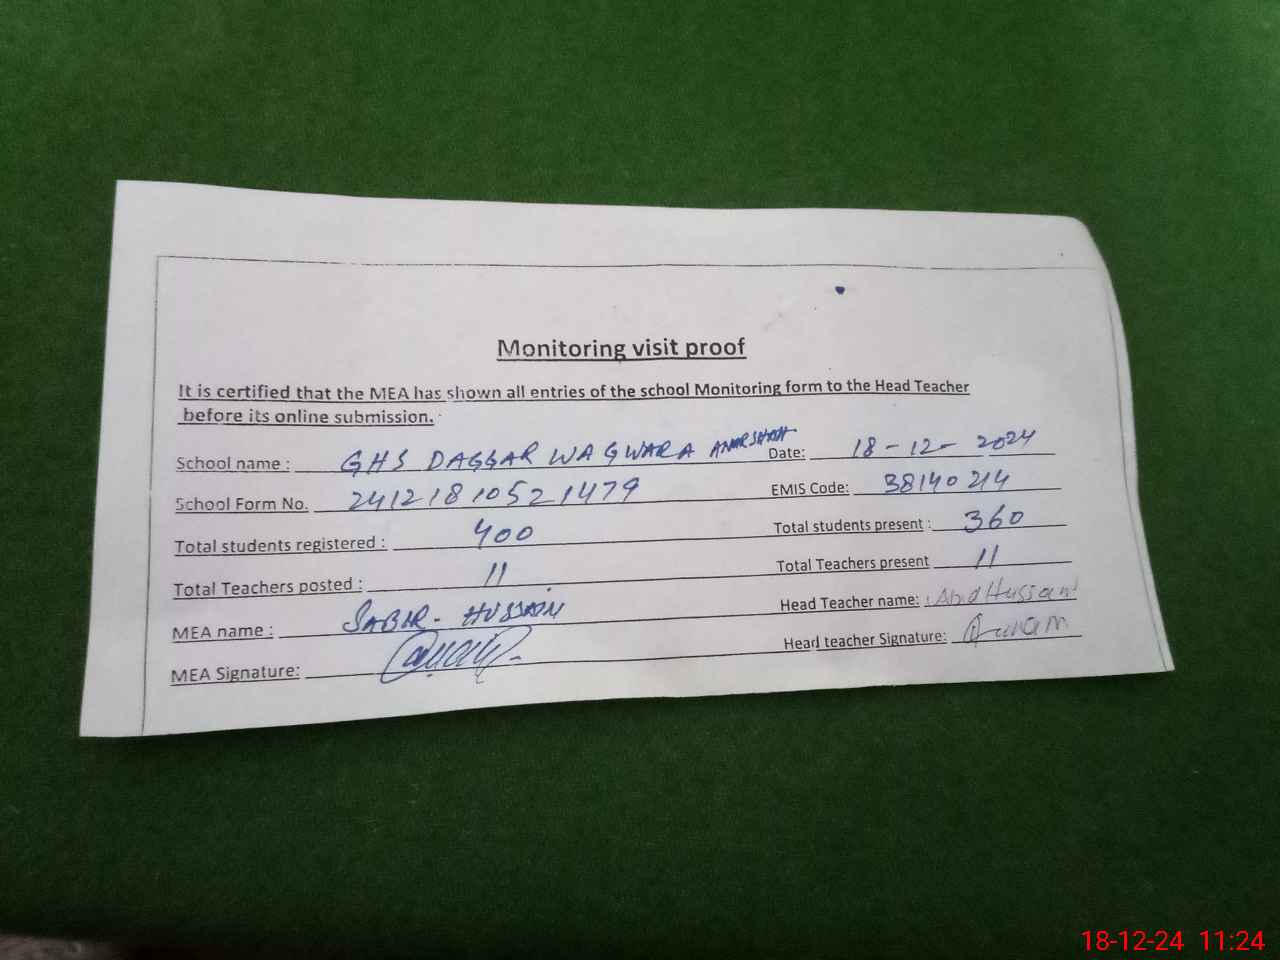 Monitoring visit proof
It is certified that the MEA has shown all entries of the school Monitoring form to the Head Teacher
before its online submission.
School name : GHS DAGGAR WAGWARA ANARSHAH Date: 18-12-2024
School Form No. 2412181052 1479 EMIS Code: 38140214
Total students registered : 400 Total students present : 360
Total Teachers posted : 11 Total Teachers present 11
MEA name : SABIR-HUSSAIN Head Teacher name: Abid Hussain
MEA Signature: Head teacher Signature:
18-12-24 11:24